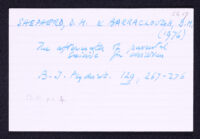 SHEPHERD, D. M. & BARRACLOUGH, B.M.
(1976)
The aftermath of parental
suicide for children
B. J. Psychiat. 129, 267-276